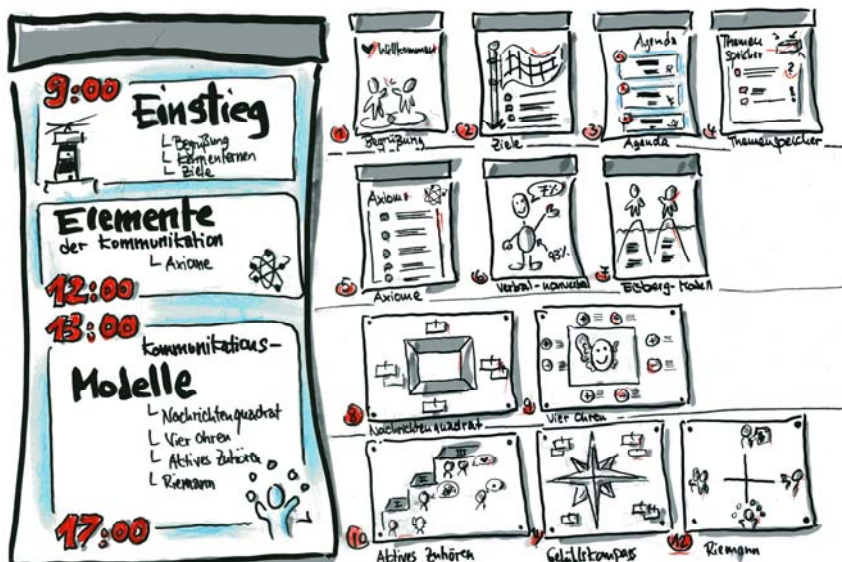 9:00
Einstieg
Begrüßung
Kennenlernen
Ziele
Elemente
der Kommunikation
Axiome
12:00
13:00
Kommunikations-
Modelle
Nachrichtenquadrat
Vier Ohren
Aktives Zuhören
Riemann
17:00
Willkommen
1 Begrüßung
2 Ziele
Agenda
3 Agenda
Themen
speicher
?
!
4 Themenspeicher
Axiome
5 Axiome
7%
93%
6 Verbal-nonverbal
7 Eisberg-Modell
8 Nachrichtenquadrat
9 Vier Ohren
III
II
I
10 Aktives Zuhören
11 Gefühlskompass
12 Riemann